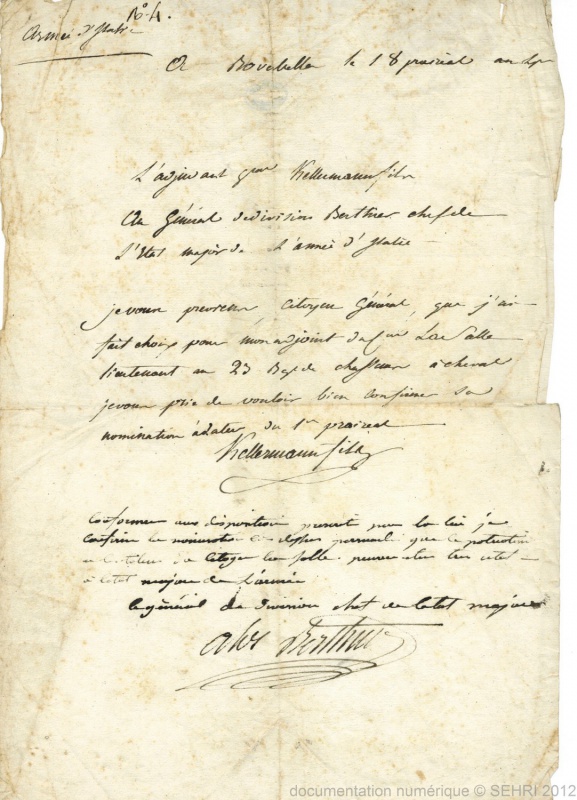 N° 4.
Armée d'Italie
A Roverbella le 18 prairial an 4e
L'adjudant gnal Kellermann fils
Au Général de division Berthier chef de
L'Etat major de L'armée d'Italie
je vous previens, Citoyen Général, que j'ai
fait choix pour mon adjoint du Cen La Salle
lieutenant au 23 Regt de chasseurs à cheval
je vous prie de vouloir bien confirmer sa
nomination à dater du 1er prairial
Kellermann fils
conforme aux disposition prescrit par la loi je
confirme la nomination ci dessus persuadé que
citoyen La Salle tres utile
a letat major de l'armée
le général de Division chef de letat major
Alex Berthier
documentation numérique © SEHRI 2012